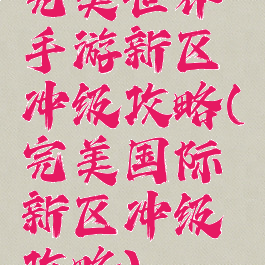 完美世界
手游新区
冲级攻略(
完美国际
新区冲级
攻略)